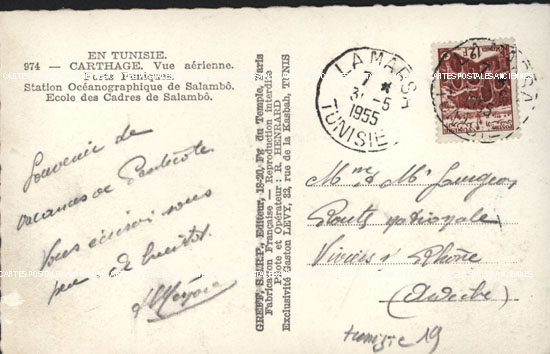 EN TUNISIE.
974 — CARTHAGE. Vue aérienne.
Ports Puniques.
Station Océanographique de Salambô.
Ecole des Cadres de Salambô.
Souvenir de
vacances de Pentecôte.
Vous écrirai sous
peu de
GREFF, S.E.R.P., Editeur, 18-20, Fg du Temple, Paris
Fabrication Française — Reproduction interdite
Photo et Opérateur : R. HENRARD
Exclusivité Gaston LEVY, 32, rue de la Kasbah, TUNIS
LA MARSA
31-5
1955
TUNISIE
12F
Mme & Mr
Route nationale
Viviers s/ Rhône
(Ardèche)
tunisie 19
CARTES POSTALES ANCIENNES